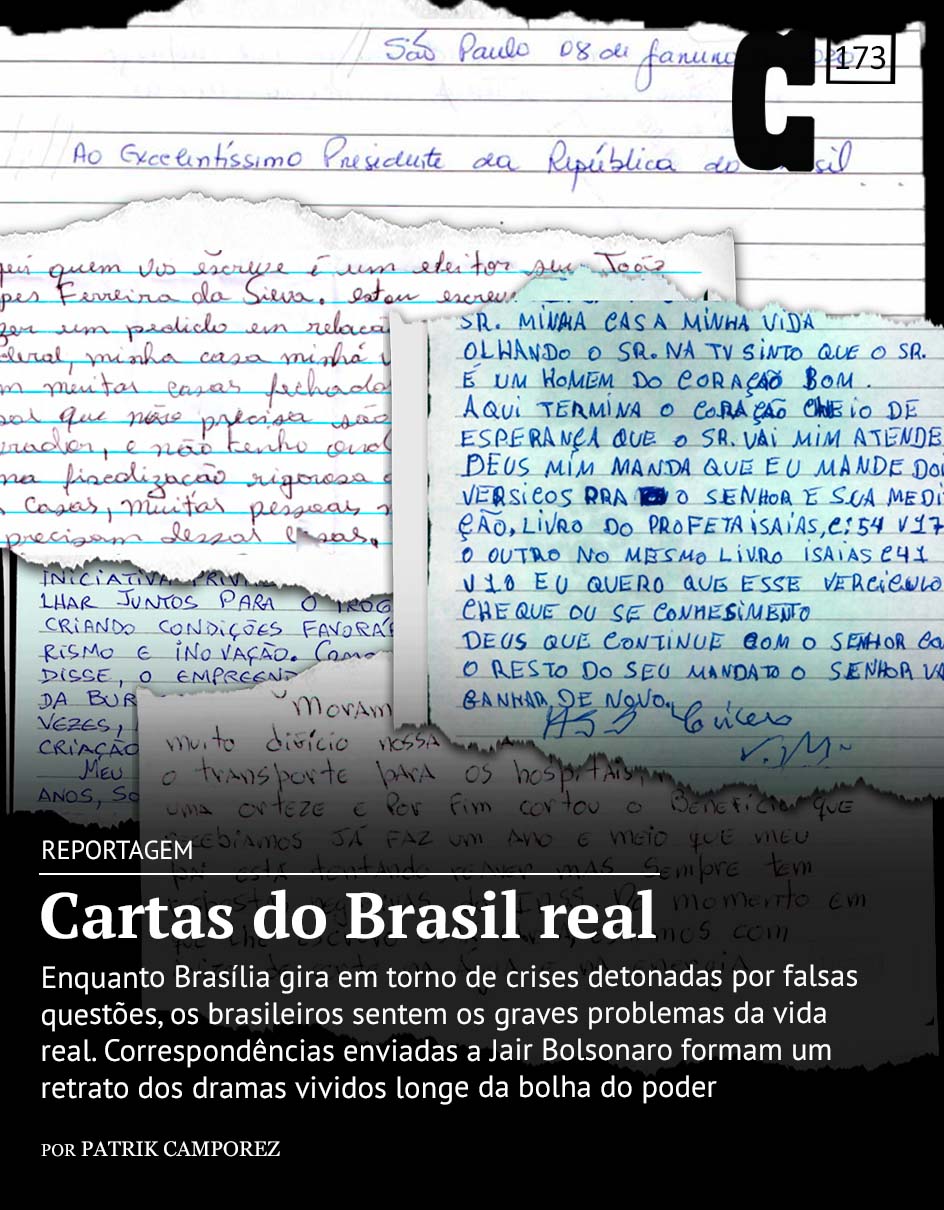 São Paulo 08 de Januro
C 173
Ao Excelentíssimo Presidente da República do sil
quem vos escreve é um eleitor seu João
pes Ferreira da Silva. estou escrev
zer um pedido em relaca
deral, minha casa minha v
m muitas casas fechada
soal que não precisa são
rador, e não tenho ond
ma fiscalização rigorosa
casas, muitas pessoas n
precisam dessas casas.
SR. MINHA CASA MINHA VIDA
OLHANDO O SR. NA TV SINTO QUE O SR.
É UM HOMEM DO CORAÇÃO BOM.
AQUI TERMINA O CORAÇÃO CHEIO DE
ESPERANÇA QUE O SR. VAI MIM ATENDE
DEUS MIM MANDA QUE EU MANDE DOI
VERSICOS PRA O SENHOR E SUA MEDI
ÇÃO, LIVRO DO PROFETA ISAIAS, C: 54 V 17
O OUTRO NO MESMO LIVRO ISAIAS C41
V10 EU QUERO QUE ESSE VERCICULO
CHEQUE OU SE CONHESIMENTO
DEUS QUE CONTINUE COM O SENHOR CO
O RESTO DO SEU MANDATO O SENHOR VA
GANHAR DE NOVO.
INICIATIVA PRIV
LHAR JUNTOS PARA O PROG
CRIANDO CONDIÇÕES FAVORÁ
RISMO E INOVAÇÃO. Como
DISSE, O EMPREEND
DA BUR
VEZES,
CRIAÇÃO
MEU
ANOS, SO
MORAM
muito difício nossa
o transporte para os hospitais,
uma orteze e Por fim cortou o Benefício que
recebíamos JÁ FAZ um ANO e meio que meu
pai está tentando reaver mas Sempre tem
INSS. No momento em
mos com
energia
REPORTAGEM
Cartas do Brasil real
Enquanto Brasília gira em torno de crises detonadas por falsas
questões, os brasileiros sentem os graves problemas da vida
real. Correspondências enviadas a Jair Bolsonaro formam um
retrato dos dramas vividos longe da bolha do poder
POR PATRIK CAMPOREZ